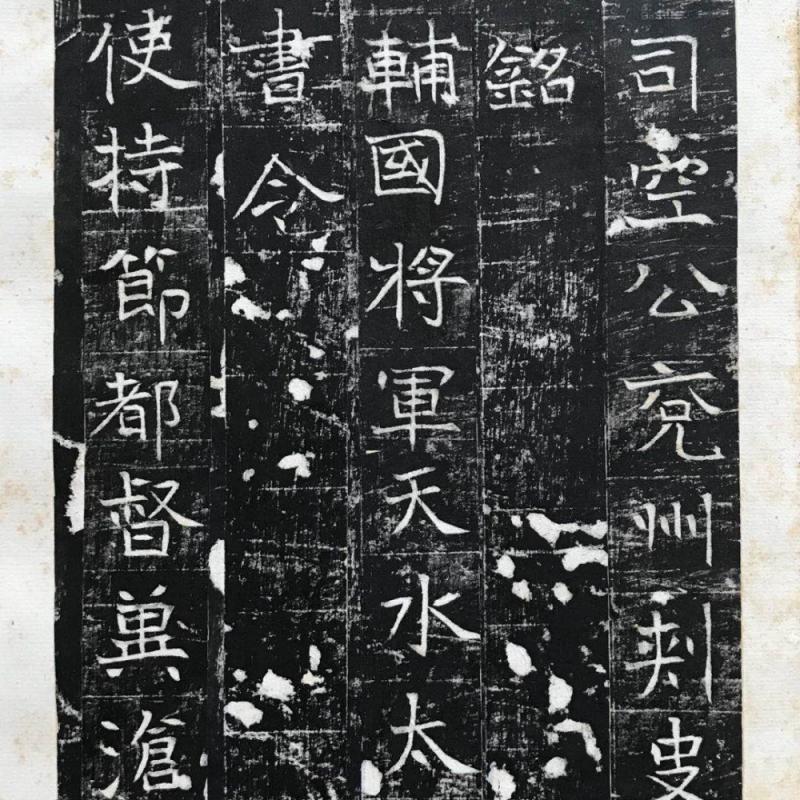 司空公兗州刺史
銘
輔國將軍天水太
書令
使持節都督冀滄